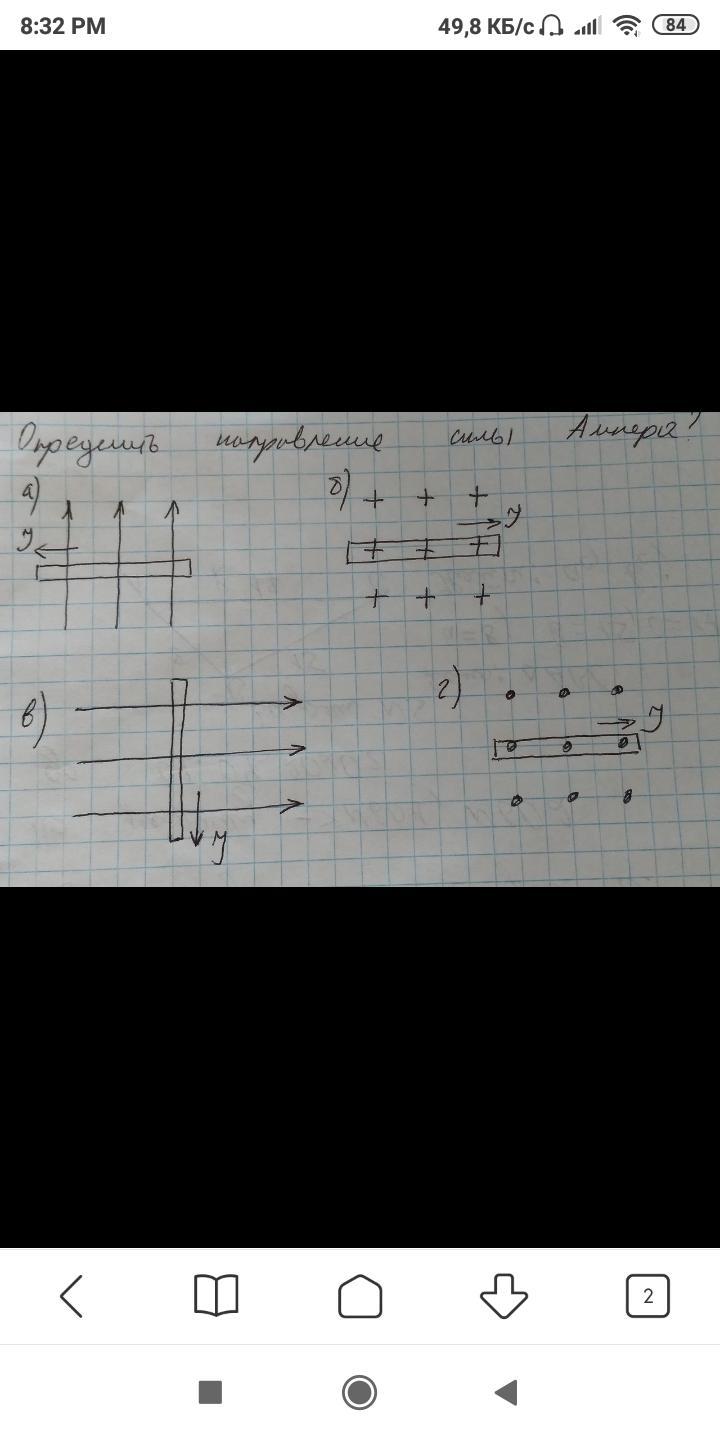 8:32 PM 49,8 КБ/с 84
Определить направление силы Ампера?
а) б)
I I
в) г)
I
I
2